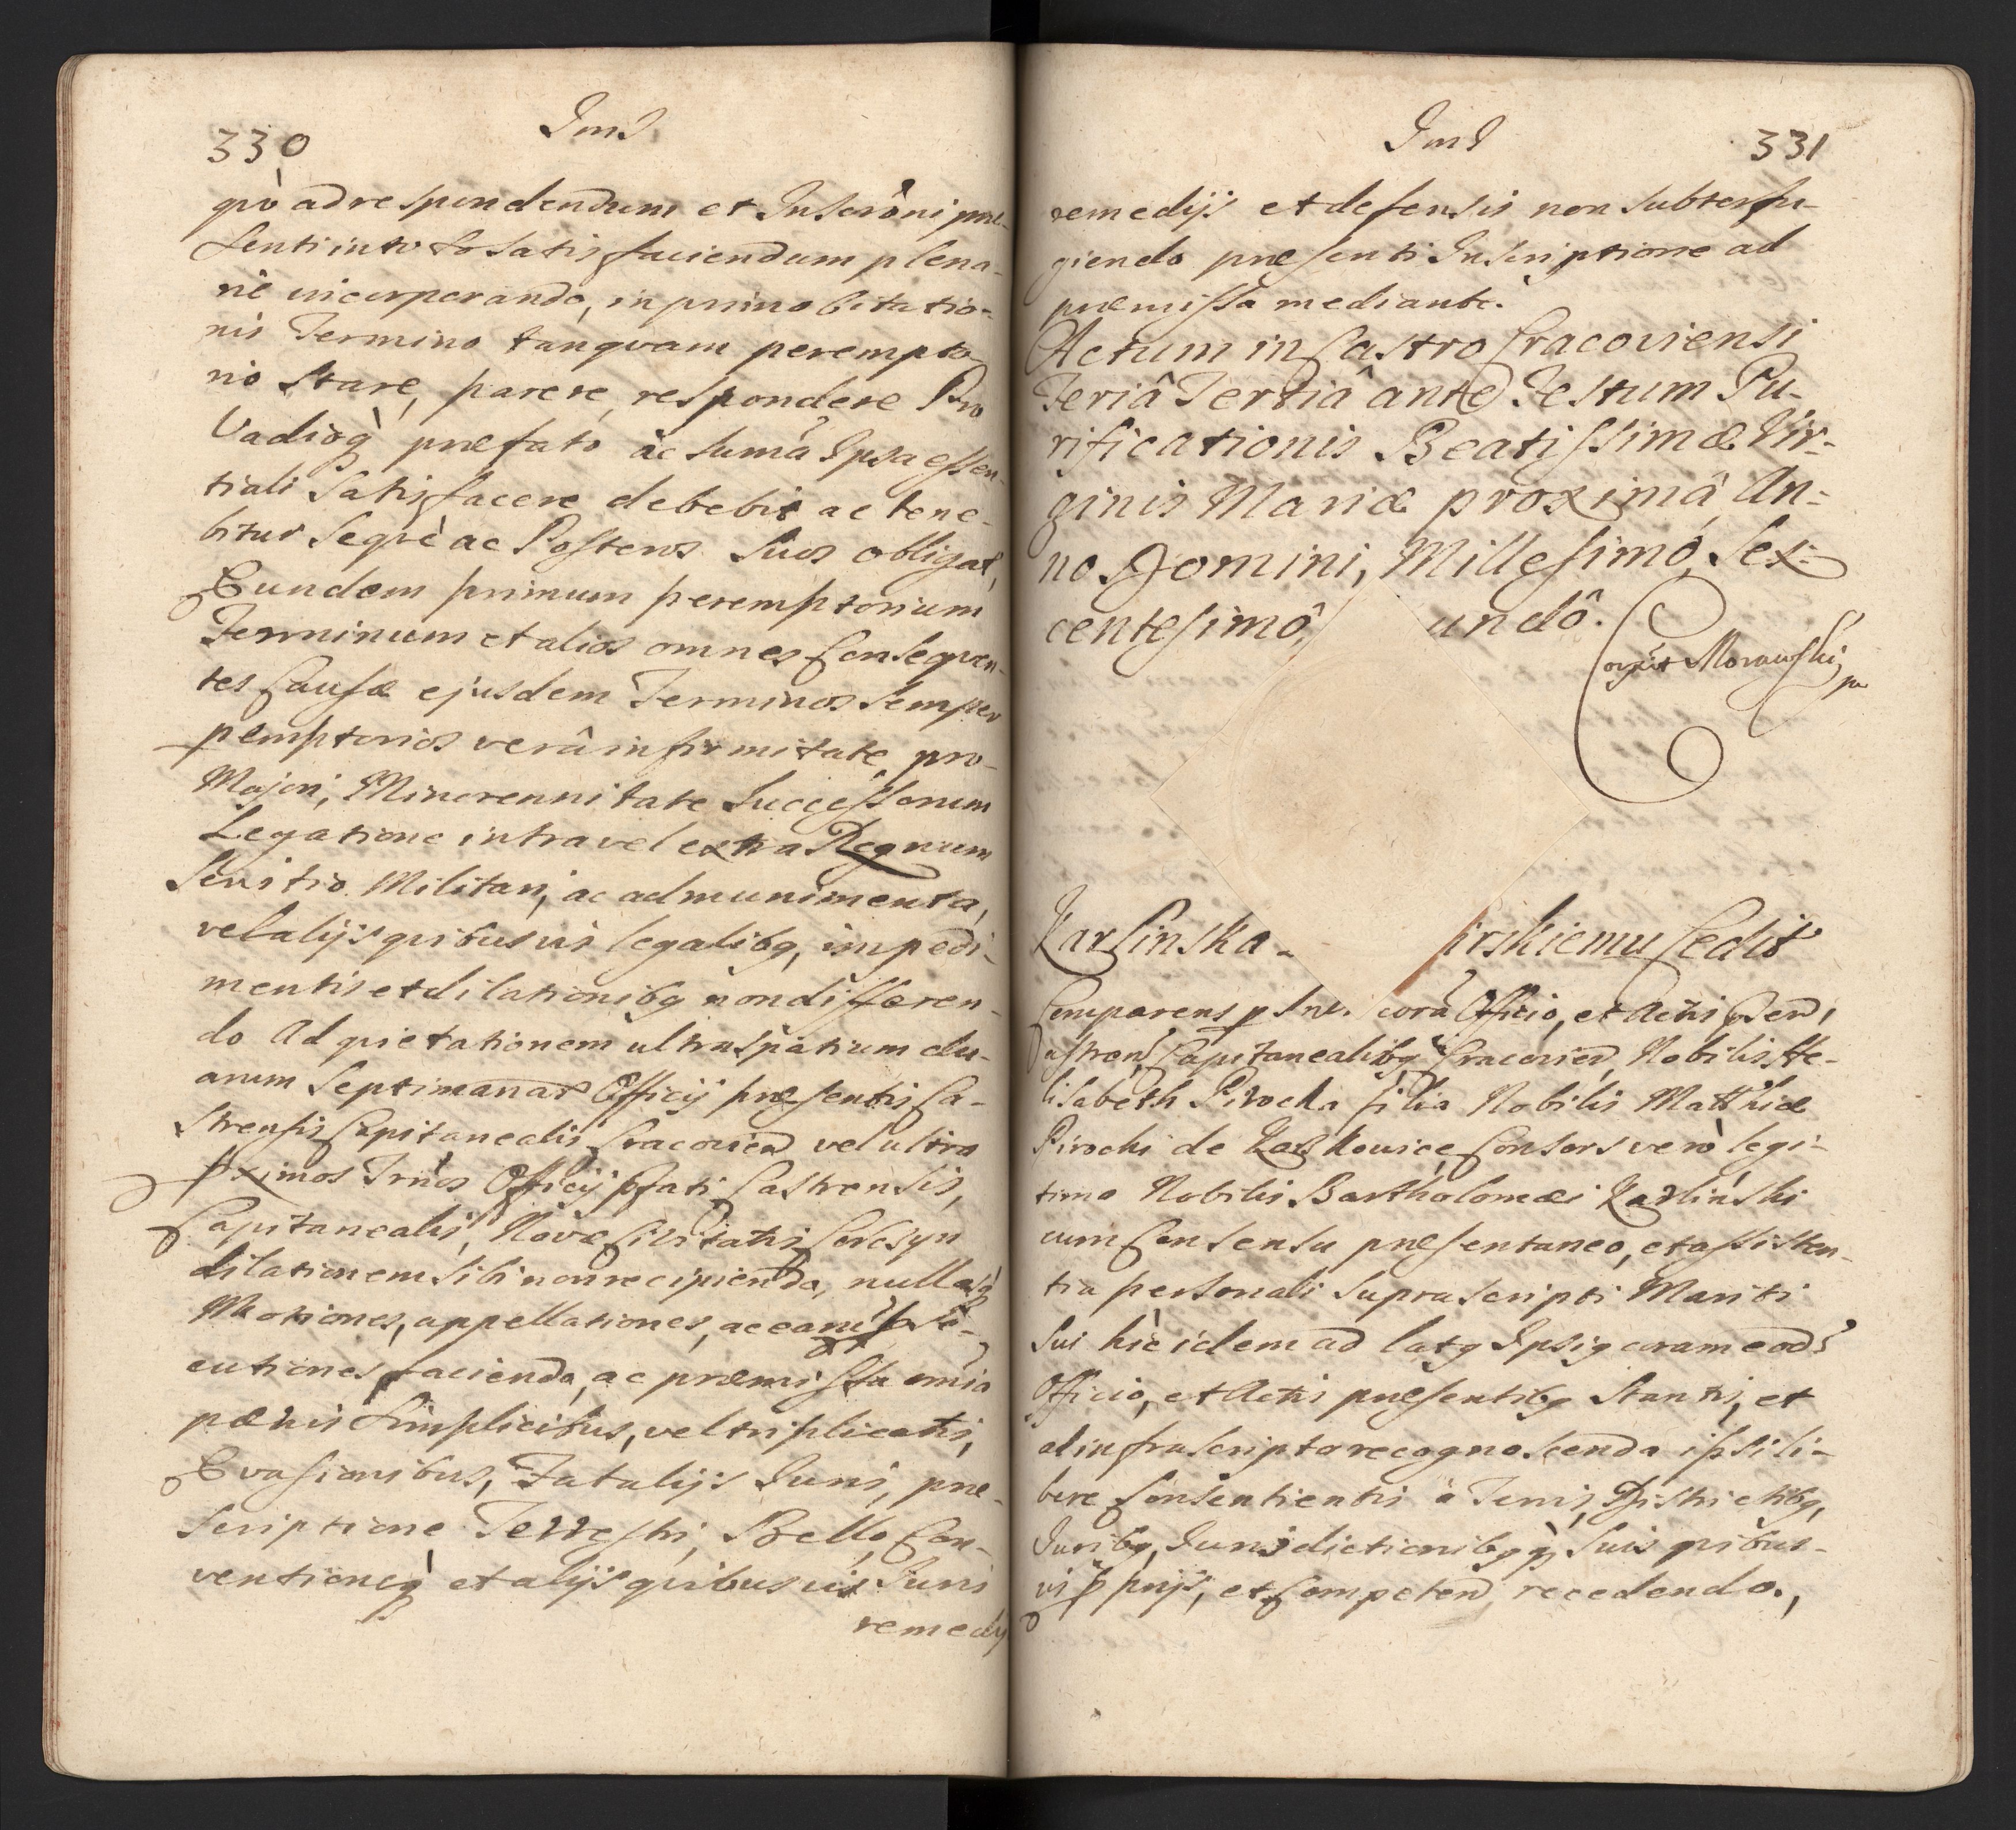 330
Ind
qvò ad respondendum et Inscrõni præ-
senti in toto satis faciendum plena-
riè incorporando, in primo Citatio-
nis Termino tanqvam perempto-
rio Stare, parere, respondere Pro
Vadioq̀ præfato ac Sum̃a Ipsa essen-
tiali Satisfacere debebit ac tene-
bitur Seqvè ac Posteros Suos obligat,
Eundem primum peremptorium
Terminum et alios omnes Conseqven-
tes Causæ ejusdem Terminos Semper
pemptorios verâ infirmitate pro
Majori, Minorennitate Successorum
Legatione intra vel extra Regnum
Servitio Militari, ac ad munimenta,
vel alijs qvibusvis legalibq, impedi-
mentis et dilationibq non differen-
do Ad qvietationem ultra spatium du-
arum Septimanar Officij præsentis Ca-
strensis Capitanealis Cracovien vel ultra
pximos Trños Officij pfati Castrensis,
Capitanealis, Novæ Civitatis Corcsyn
dilationem sibi non recipiendo, nullasq̀
Motiones, appellationes, ac earũ pse-
cutiones faciendo, ac præmissa omia
pænis Simplicibus, vel triplicatis,
Evasionibus, Fatalijs Juris, præ-
scriptione Terrestri, Bello, Con-
ventioneq̀ et alijs qvibusvis Juris
remedij
Ind
331
remedijs et defensis non subterfu-
giendo præsenti Inscriptione ad
præmissa mediante.
Actum in Castro Cracoviensi
Feriâ Tertiâ ante Festum Pu-
rificationis Beatissimæ Vir-
ginis Mariæ proximâ, An-
no Domini, Millesimô, Sex-
centesimô, undô.
Morawski
Karlinska - irskiemu Cedit
Comparens p sne. corã Officio, et Actis psen,
Castren, Capitanealibq Cracovien, Nobilis He-
lisabeth Pirocka filia Nobilis Matthiæ
Pirocki de Kaszkowice, Consors verò legi-
tima Nobilis Bartholomæi Karlinski
cum Consensu præsentaneo, et assisten-
tia personali suprascripti Mariti
Sui hic idem ad latq Ipsiq coram eod
Officio, et Actis præsentibq Stantis, et
ad infrascripta recognoscenda ipsi li-
bere Consentientis à Terris, Districtibq,
Juribq, Jurisdictionibqq̀ Suis qvibus-
vis pprijs, et Competen recedendo,